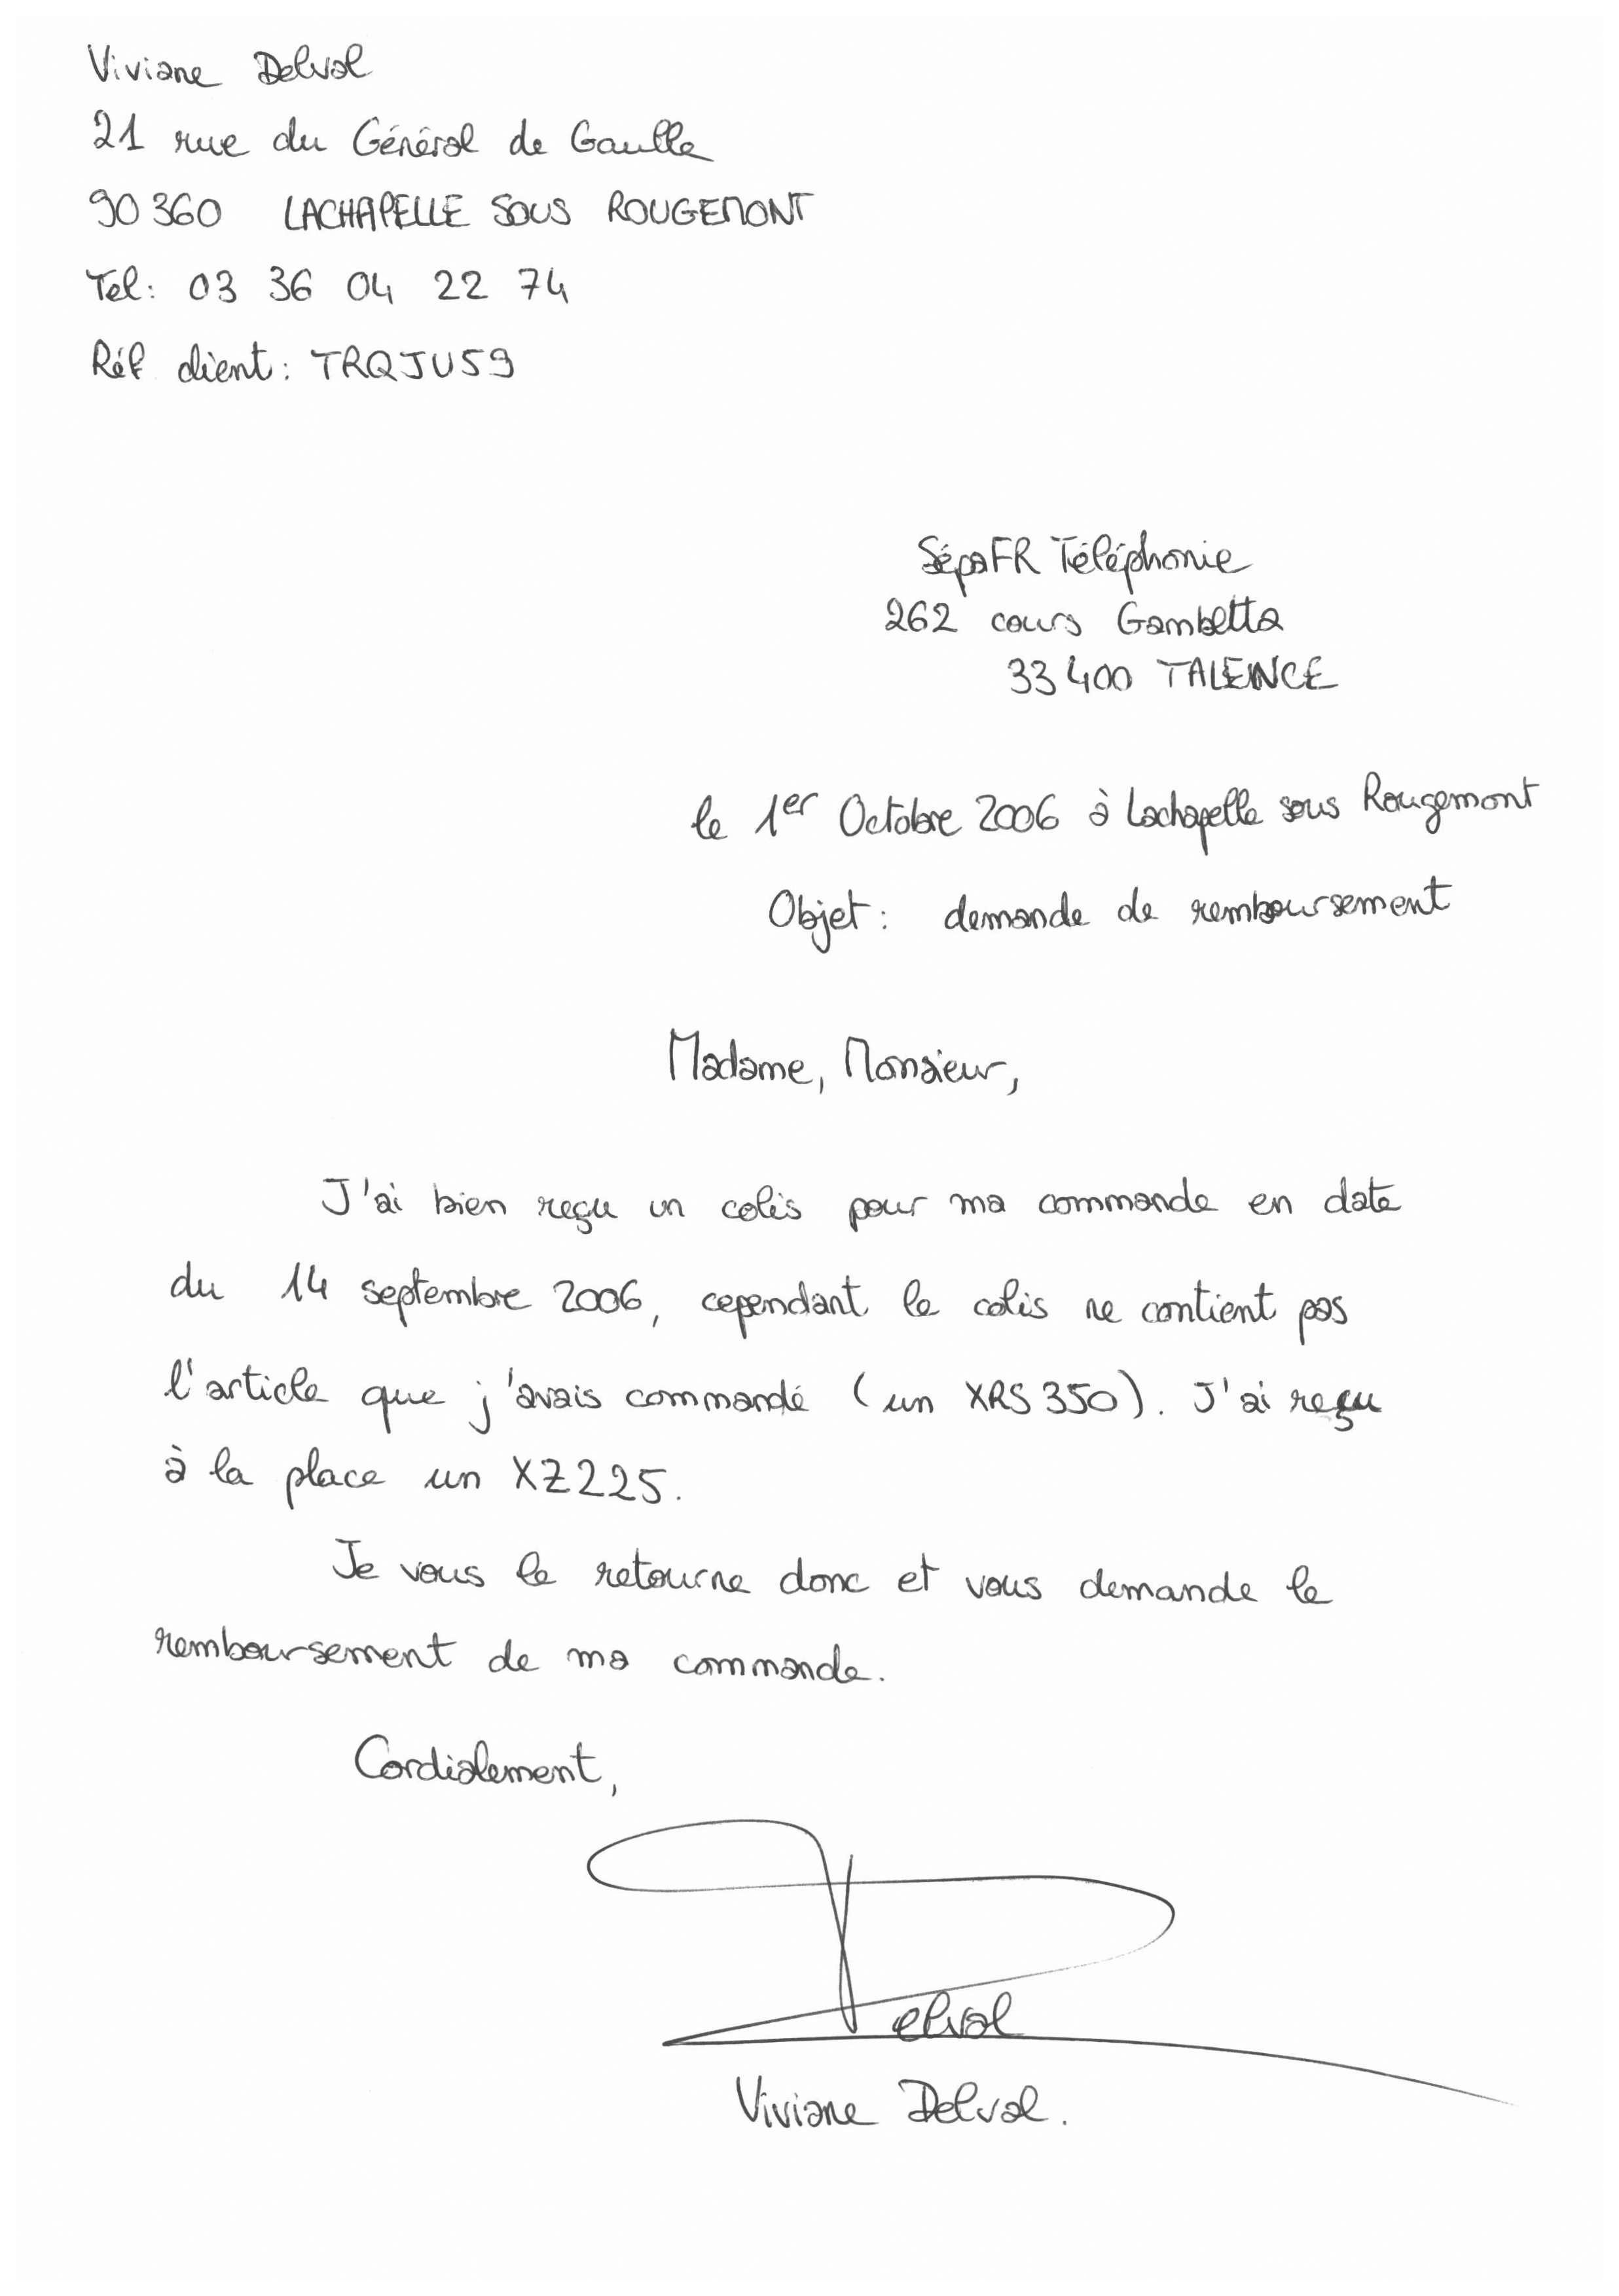 Viviane Delval
21 rue du Général de Gaulle
90 360 LACHAPELLE SOUS ROUGEMONT
Tel: 03 36 04 22 74
Réf client: TRQJU59
SépaFR Téléphonie
262 cours Gambetta
33 400 TALENCE
le 1er Octobre 2006 à Lachapelle sous Rougemont
Objet: demande de remboursement
Madame, Monsieur,
J'ai bien reçu un colis pour ma commande en date
du 14 septembre 2006, cependant le colis ne contient pas
l'article que j'avais commandé (un XRS 350). J'ai reçu
à la place un XZ225.
Je vous le retourne donc et vous demande le
remboursement de ma commande.
Cordialement,
Delval
Viviane Delval.